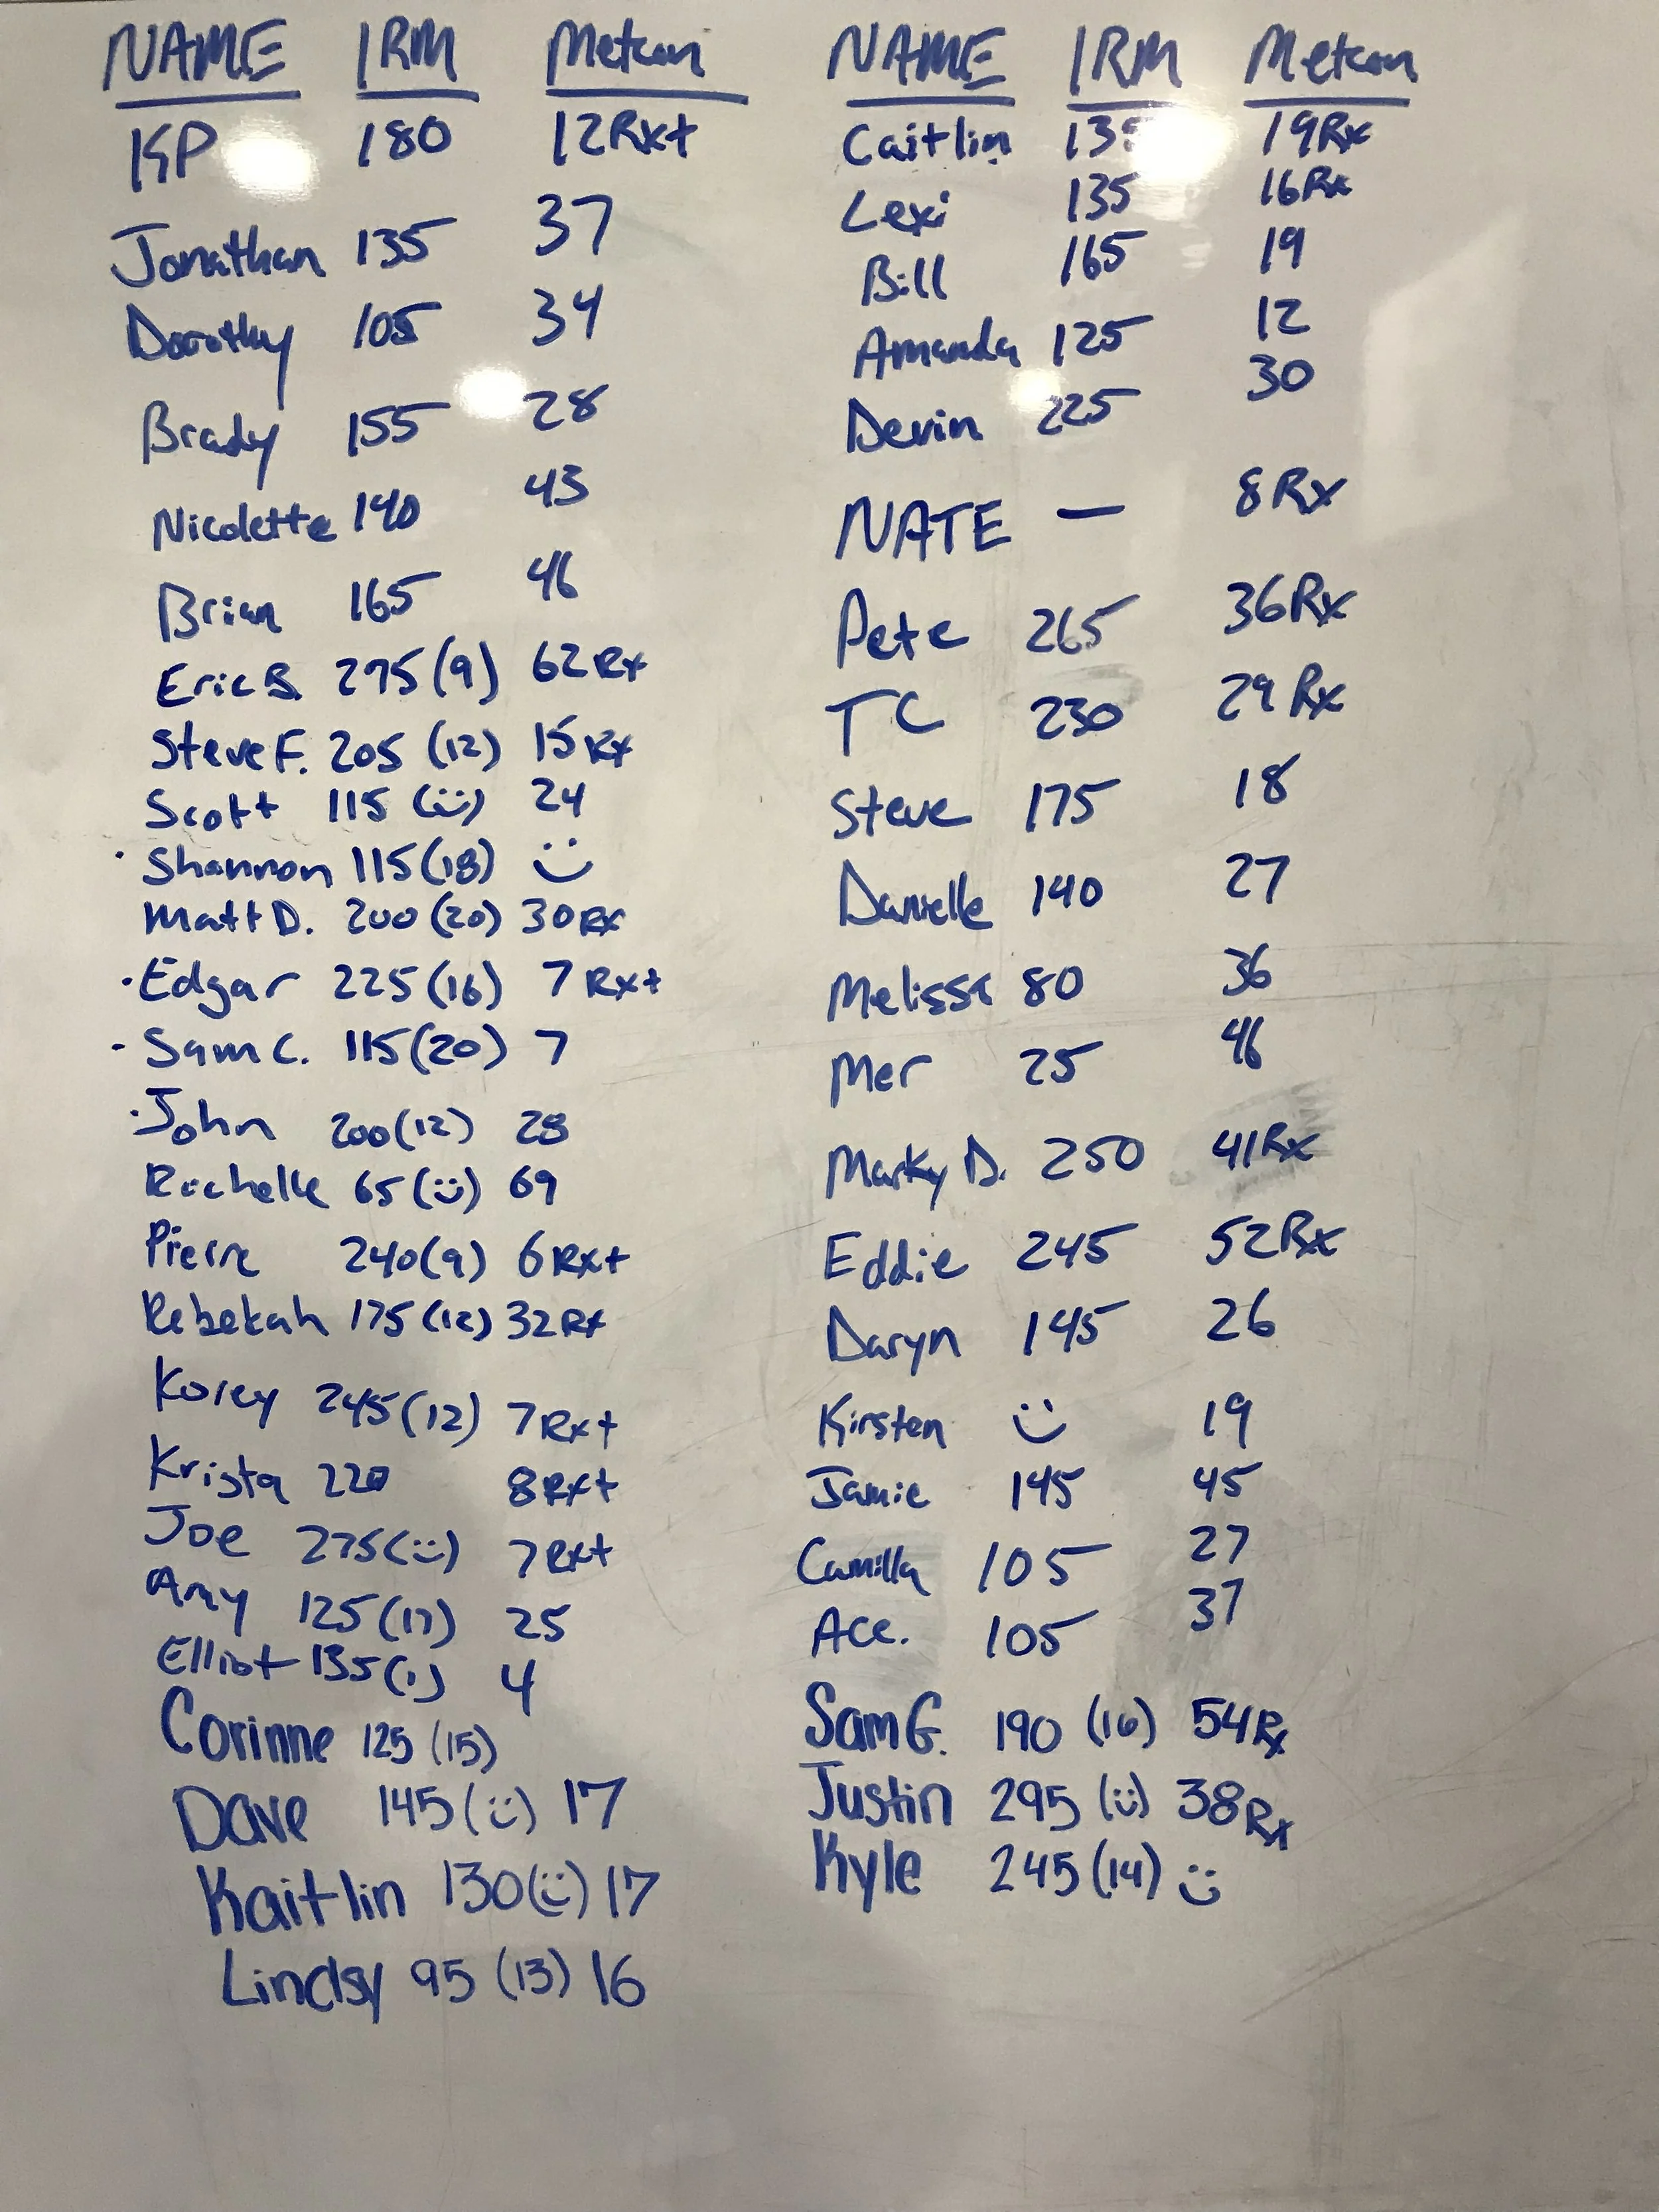 NAME 1RM Metcon
KP 180 12Rx+
Jonathan 135 37
Dorothy 105 34
Brady 155 28
Nicolette 140 43
Brian 165 46
Eric B. 275 (9) 62 Rx
Steve F. 205 (12) 15 Rx
Scott 115 (ü) 24
· Shannon 115 (18) :)
Matt D. 200 (20) 30 Rx
· Edgar 225 (16) 7 Rx+
· Sam C. 115 (20) 7
· John 200 (12) 28
Rachelle 65 (ü) 69
Pierre 240 (9) 6 Rx+
Rebekah 175 (12) 32 Rx
Korey 245 (12) 7 Rx+
Krista 220 8 Rx+
Joe 275 (ü) 7 Rx+
Amy 125 (17) 25
Elliot 135 4
Corinne 125 (15)
Dave 145 (ü) 17
Kaitlin 130 (ü) 17
Lindsy 95 (13) 16
NAME 1RM Metcon
Caitlin 135 19Rx
Lexi 135 16Rx
Bill 165 19
Amanda 125 12
Devin 225 30
NATE — 8 Rx
Pete 265 36Rx
TC 230 29 Rx
Steve 175 18
Danielle 140 27
Melissa 80 36
Mer 25 46
Marky D. 250 41Rx
Eddie 245 52Rx
Daryn 145 26
Kirsten :) 19
Jamie 145 45
Camilla 105 27
Ace. 105 37
Sam G. 190 (16) 54Rx
Justin 295 (ü) 38Rx
Kyle 245 (14) :)